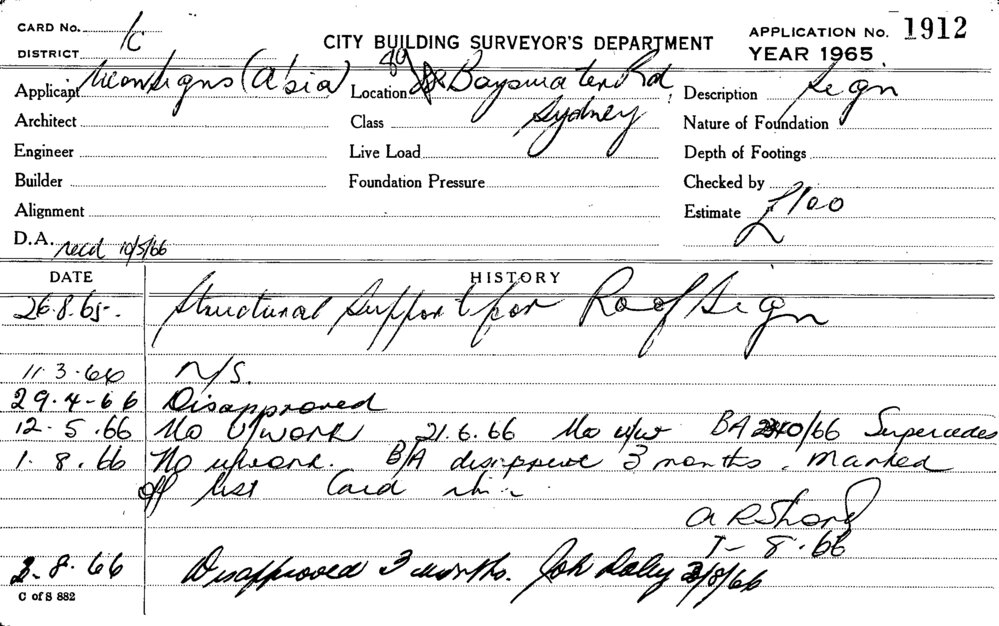 CARD No. 1c
CITY BUILDING SURVEYOR'S DEPARTMENT
APPLICATION No. 1912
DISTRICT
YEAR 1965
Applicant Neon Signs (A'sia) Location 49 Bayswater Rd Description Sign
Architect Class Sydney Nature of Foundation
Engineer Live Load Depth of Footings
Builder Foundation Pressure Checked by
Alignment Estimate £100
D.A. recd 10/5/66
DATE HISTORY
26.8.65. Structural Support for Roof Sign
11.3.66 N/S.
29.4-66 Disapproved
12.5.66 No U/work 21.6.66 No u/w BA /66 Supercedes
1.8.66 No u/work. B/A disapprove 3 months. Marked
off list Card
1-8.66
8.66 Disapproved 3 months. /8/66
C of S 882